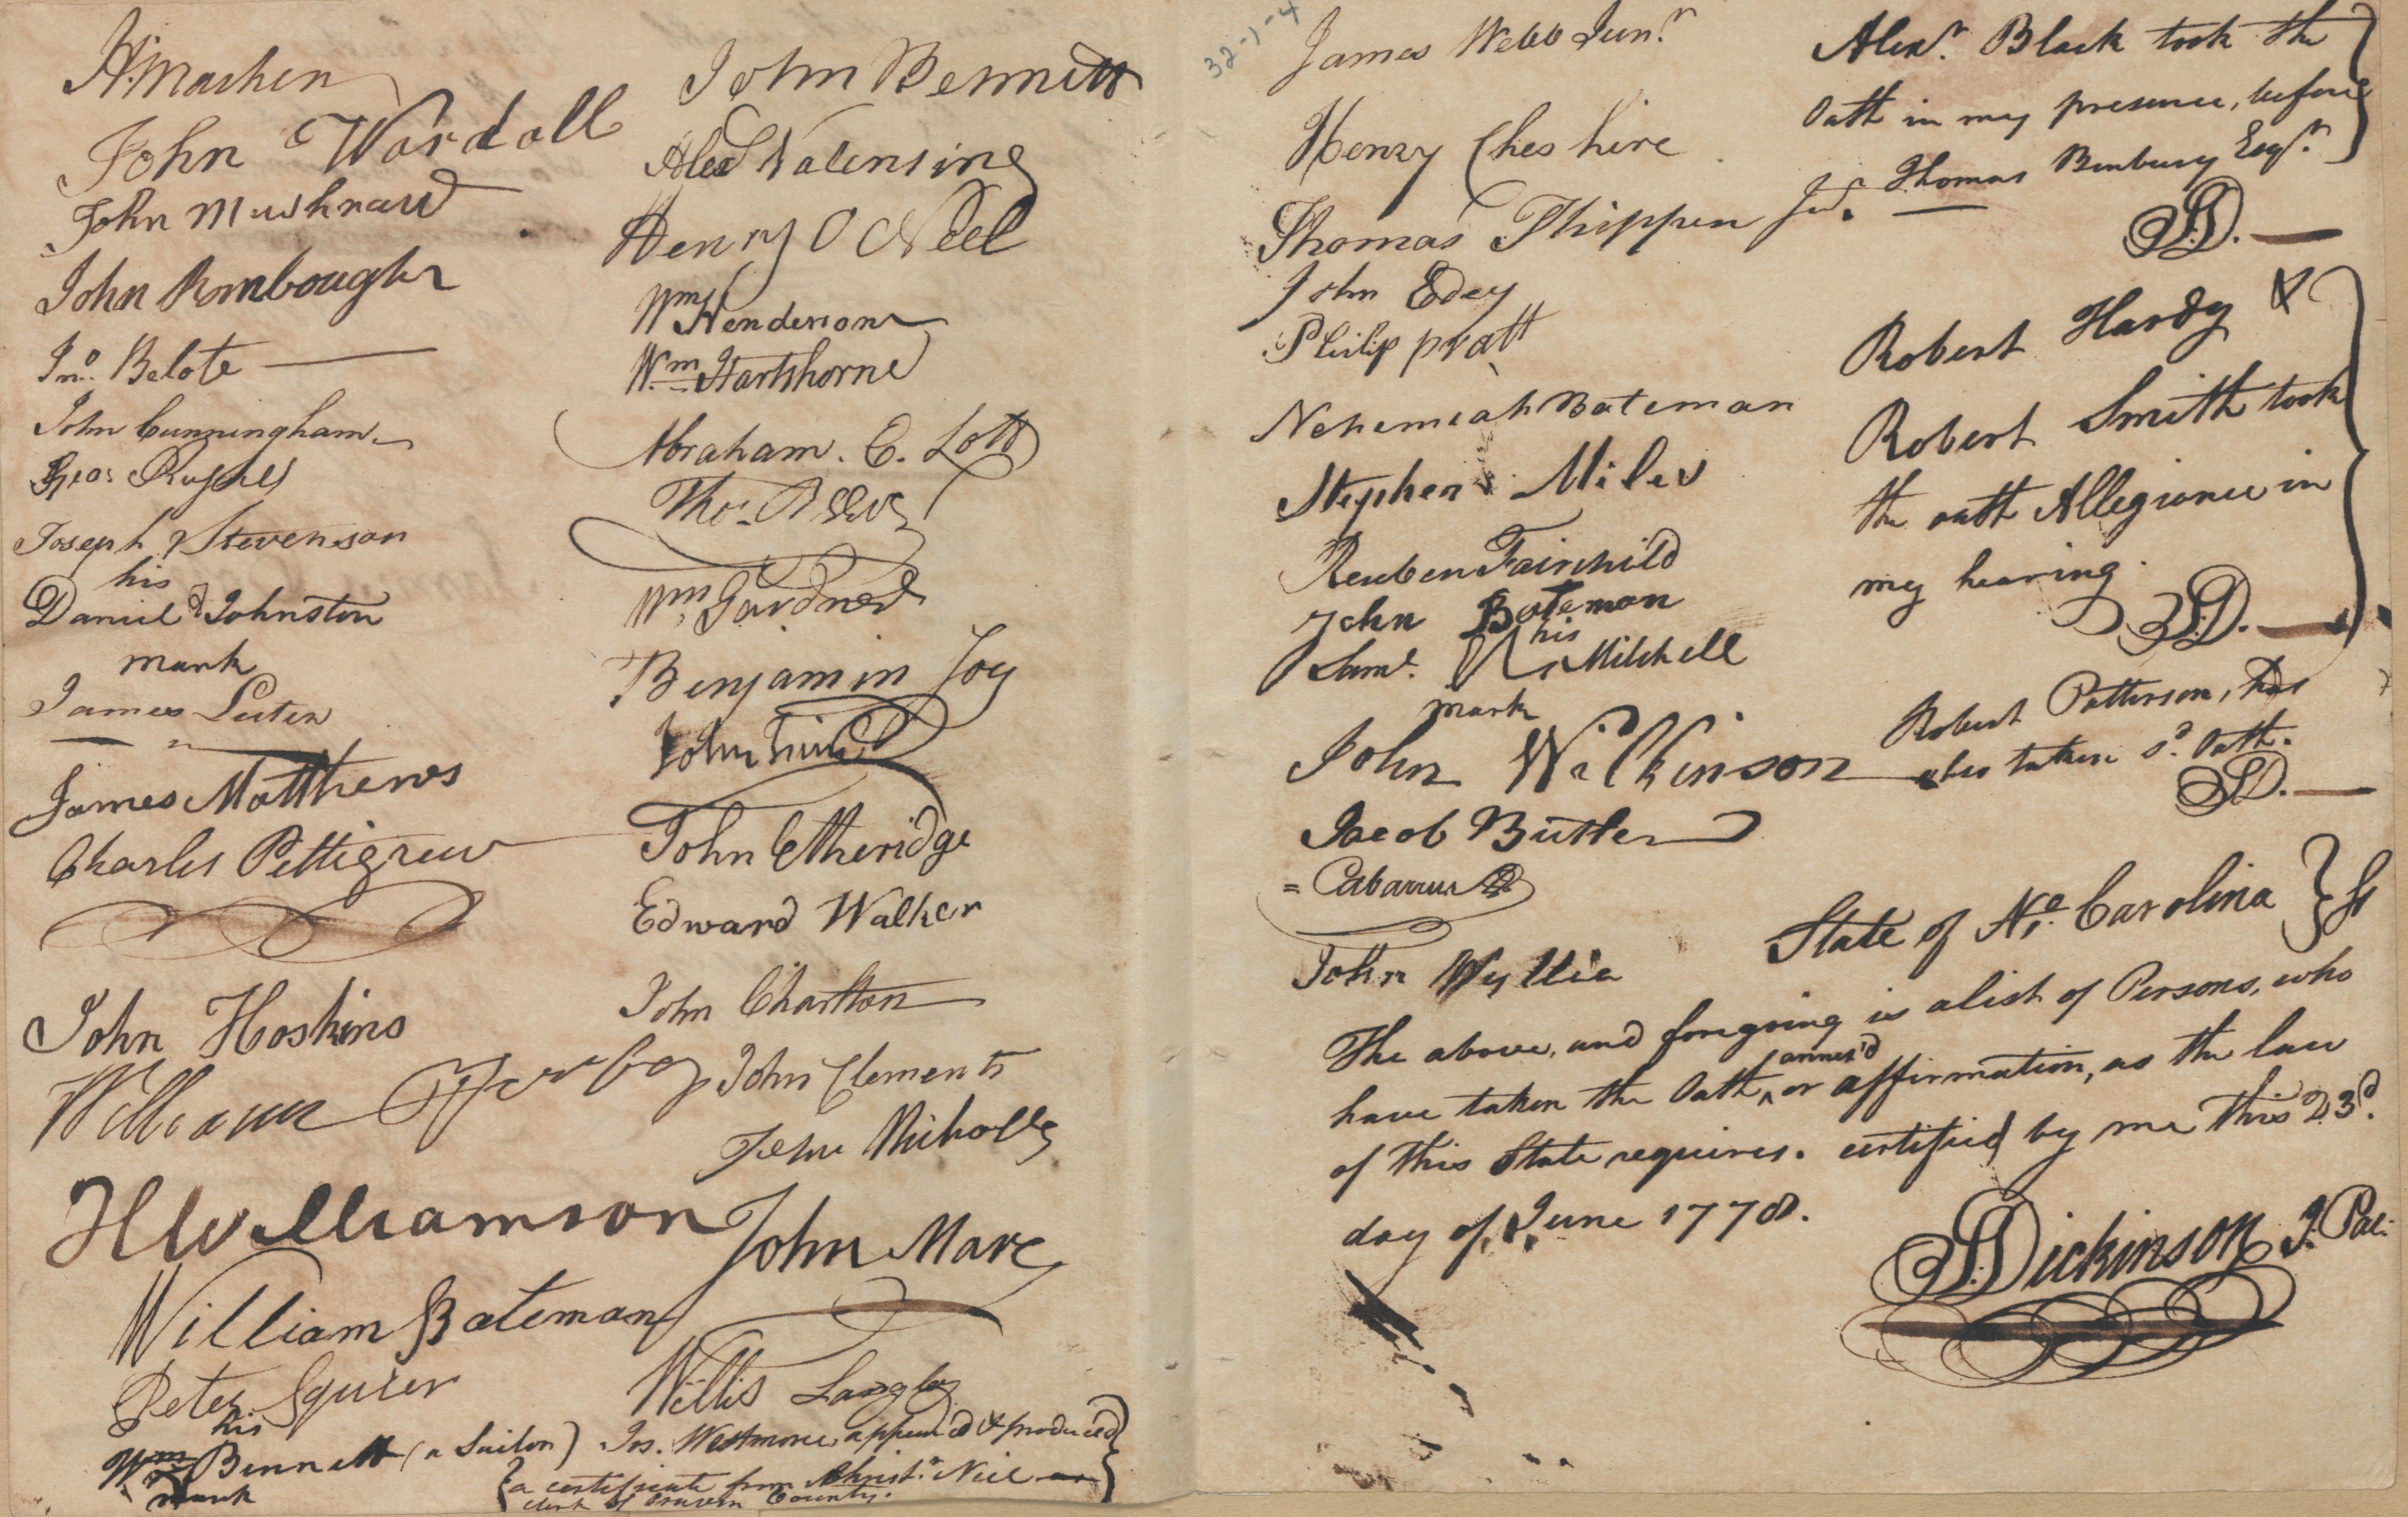 H. Machen
John Wardall
John Mushraw
John Rombough
Jno. Belote
John Cunningham
Geo: Russell
Joseph Stevenson
his
Daniel Johnston
mark
James Luten
James Matthews
Charles Pettigrew
John Hoskins
William
H Williamson
William Bateman
Peter Squier
his
Wm Bennett (a Sailor)
mark
John Bennett
Alex Valensing
Henry O Neel
Wm Henderson
Wm Hartshorne
Abraham. C. Lott
Tho.
Wm Gardner
Benjamin Joy
John
John Etheridge
Edward Walker
John Charlton
John Clements
John Nicholls
John Mare
Willis Langley
Jos. Westmore, appear'd & produced
a certificate from Christr. Neil
clerk of Craven County.
32-1-4
James Webb Junr.
Henry Cheshire
Thomas Phippen
John Edey
Philip pratt
Nehemiah Bateman
Stephen Miles
Reuben Fairchild
John Bateman
his
Saml. Mitchell
mark
John Wilkinson
Jacob Butler
= Cabarrus
John Wyllie
Alexr. Black took the
Oath in my presence, before
Thomas Benbury Esqr.
S.D.
Robert Hardy &
Robert Smith took
the oath Allegiance in
my hearing.
S.D.
Robert Patterson, has
also taken sd. Oath.
S.D.
State of No. Carolina } Ss
The above, and foregoing is a list of Persons, who
annex'd
have taken the Oath ^ or affirmation, as the law
of this State requires. certified by me this 23d.
day of June 1778.
S. Dickinson J. Pac: